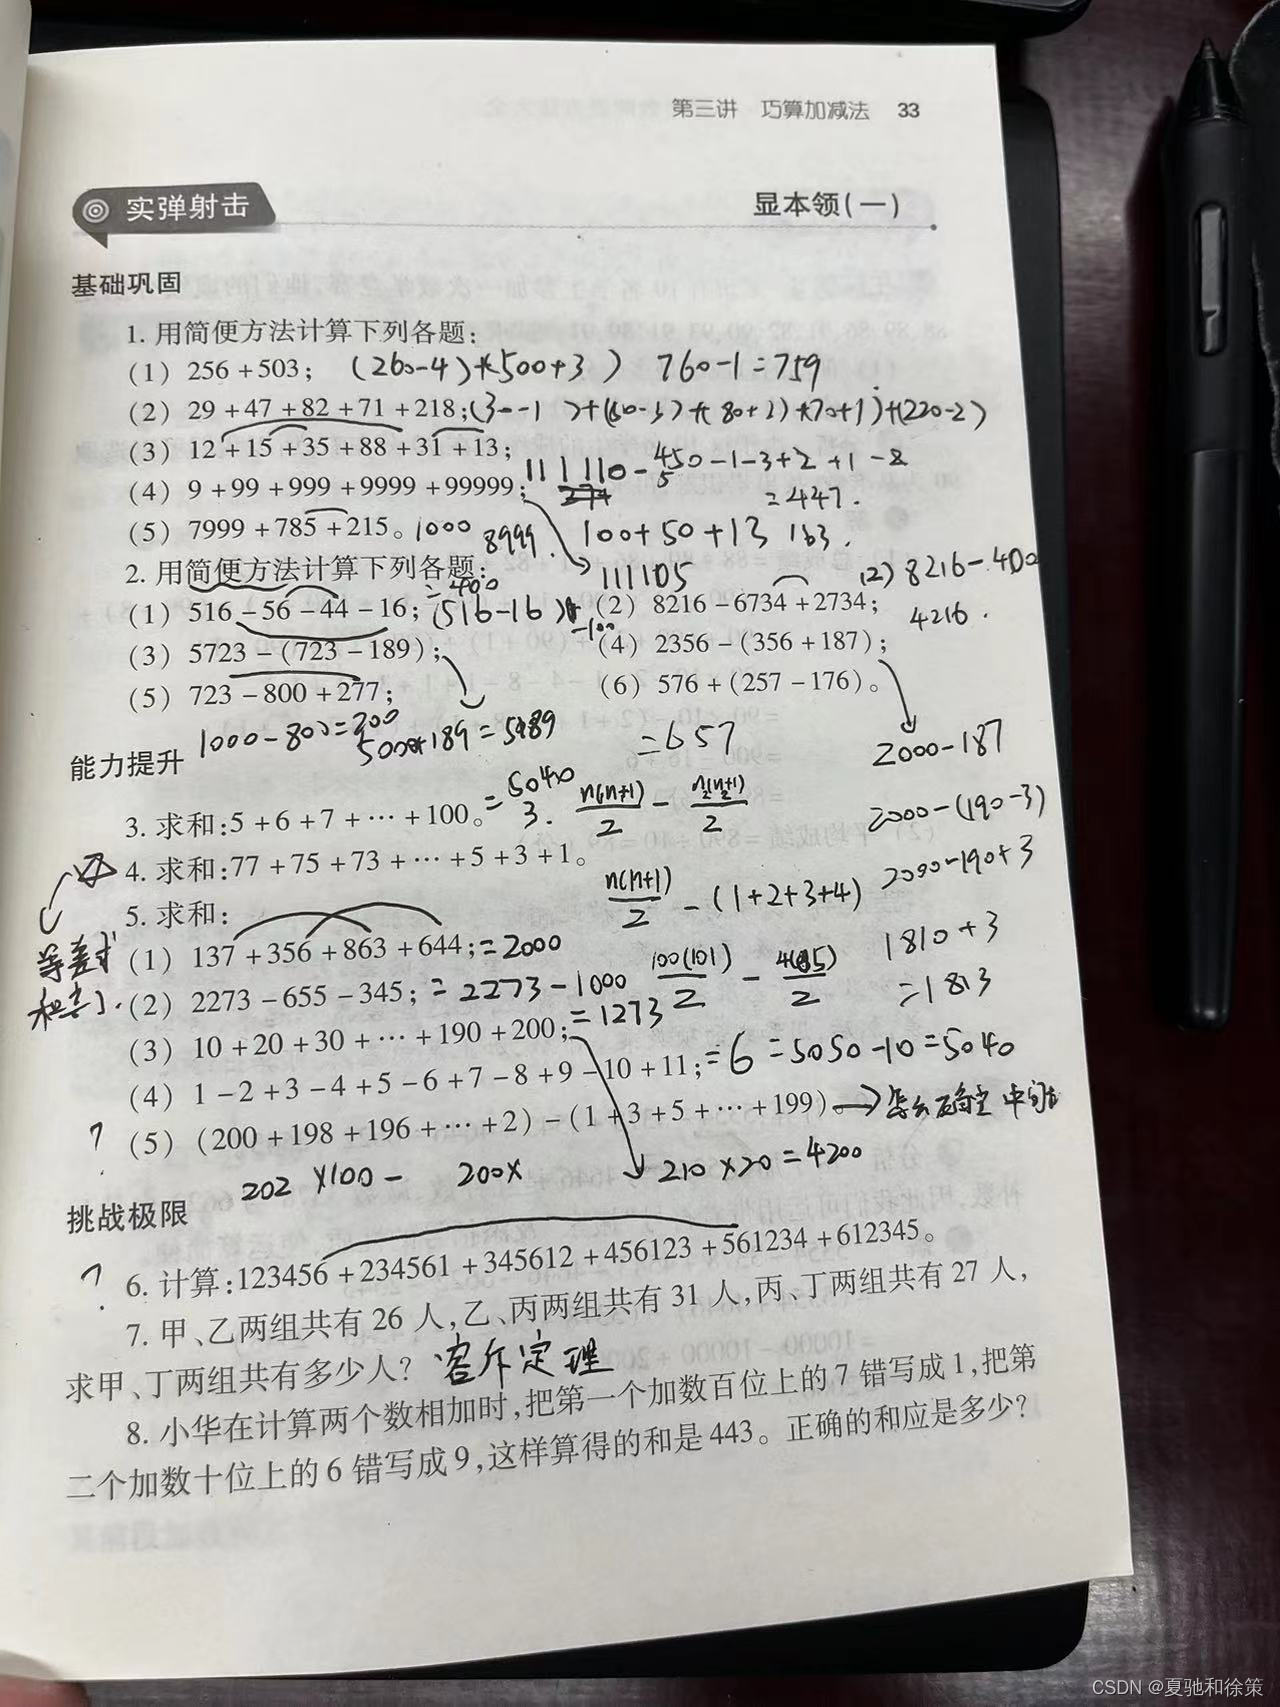 第三讲 巧算加减法 33
实弹射击 显本领(一)
基础巩固
1. 用简便方法计算下列各题:
(1) 256+503; (260-4)+(500+3) 760-1=759
(2) 29+47+82+71+218;
(3) 12+15+35+88+31+13;
111110-450-1-3+2+1-2
=447.
(4) 9+99+999+9999+99999;
(5) 7999+785+215。1000 8999. 100+50+13 163.
111105
2. 用简便方法计算下列各题:
(2) 8216-400
(1) 516-56-44-16; (516-16) -100 =400 (2) 8216-6734+2734;
4216.
(3) 5723-(723-189); (4) 2356-(356+187);
(5) 723-800+277; (6) 576+(257-176)。
1000-800=200 5000+189=5189 =657 2000-187
能力提升
3. 求和:5+6+7+…+100。=5040 3. n(n+1)/2 -
2000-(190-3)
4. 求和:77+75+73+…+5+3+1。
n(n+1)/2 -(1+2+3+4) 2000-190+3
5. 求和:
(1) 137+356+863+644;=2000 1810+3
(2) 2273-655-345;=2273-1000 100(101)/2 - =1813
=1273
(3) 10+20+30+…+190+200;
(4) 1-2+3-4+5-6+7-8+9-10+11;=6 =5050-10=5040
? (5) (200+198+196+…+2)-(1+3+5+…+199)
202×100- 200× 210×20=4200
挑战极限
? 6. 计算:123456+234561+345612+456123+561234+612345。
7. 甲、乙两组共有26人,乙、丙两组共有31人,丙、丁两组共有27人,
求甲、丁两组共有多少人? 容斥定理
8. 小华在计算两个数相加时,把第一个加数百位上的7错写成1,把第
二个加数十位上的6错写成9,这样算得的和是443。正确的和应是多少?
CSDN @夏驰和徐策